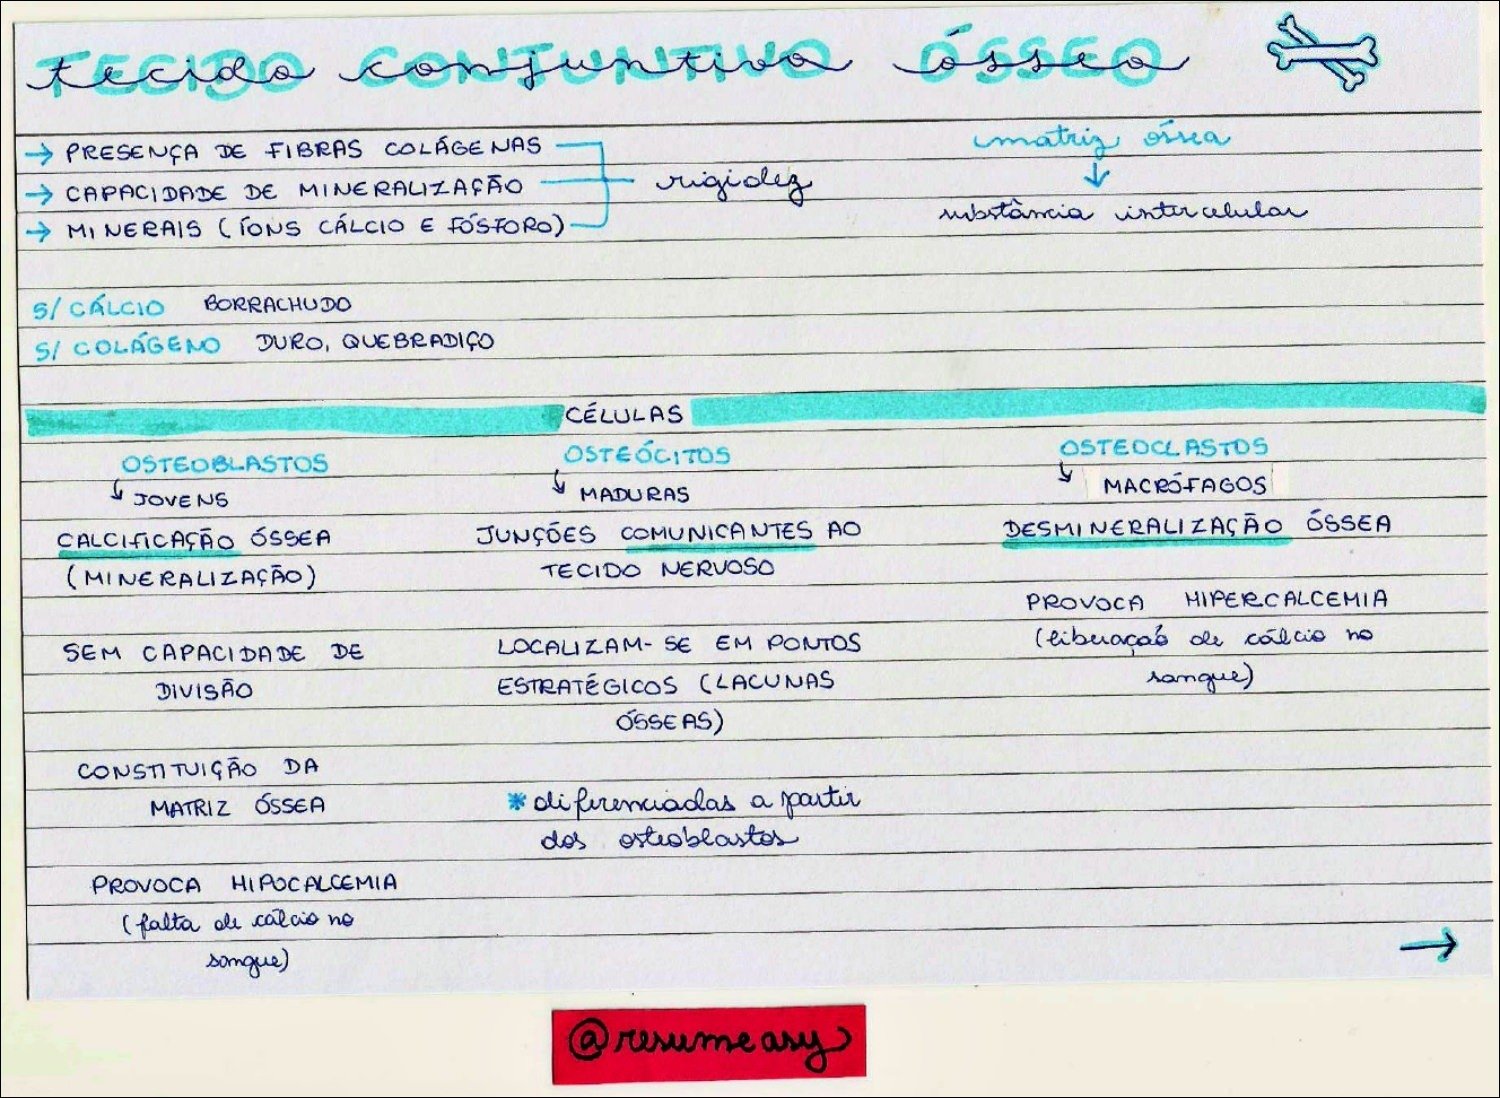 tecido conjuntivo ósseo
→ PRESENÇA DE FIBRAS COLÁGENAS
→ CAPACIDADE DE MINERALIZAÇÃO
→ MINERAIS (ÍONS CÁLCIO E FÓSFORO)
rigidez
matriz óssea
↓
substância intercelular
S/ CÁLCIO BORRACHUDO
S/ COLÁGENO DURO, QUEBRADIÇO
CÉLULAS
OSTEOBLASTOS
JOVENS
CALCIFICAÇÃO ÓSSEA
(MINERALIZAÇÃO)
SEM CAPACIDADE DE
DIVISÃO
CONSTITUIÇÃO DA
MATRIZ ÓSSEA
PROVOCA HIPOCALCEMIA
(falta de cálcio no
sangue)
OSTEÓCITOS
MADURAS
JUNÇÕES COMUNICANTES AO
TECIDO NERVOSO
LOCALIZAM-SE EM PONTOS
ESTRATÉGICOS (LACUNAS
ÓSSEAS)
* diferenciadas a partir
dos osteoblastos
OSTEOCLASTOS
MACRÓFAGOS
DESMINERALIZAÇÃO ÓSSEA
PROVOCA HIPERCALCEMIA
(liberação de cálcio no
sangue)
→
@resumeasy